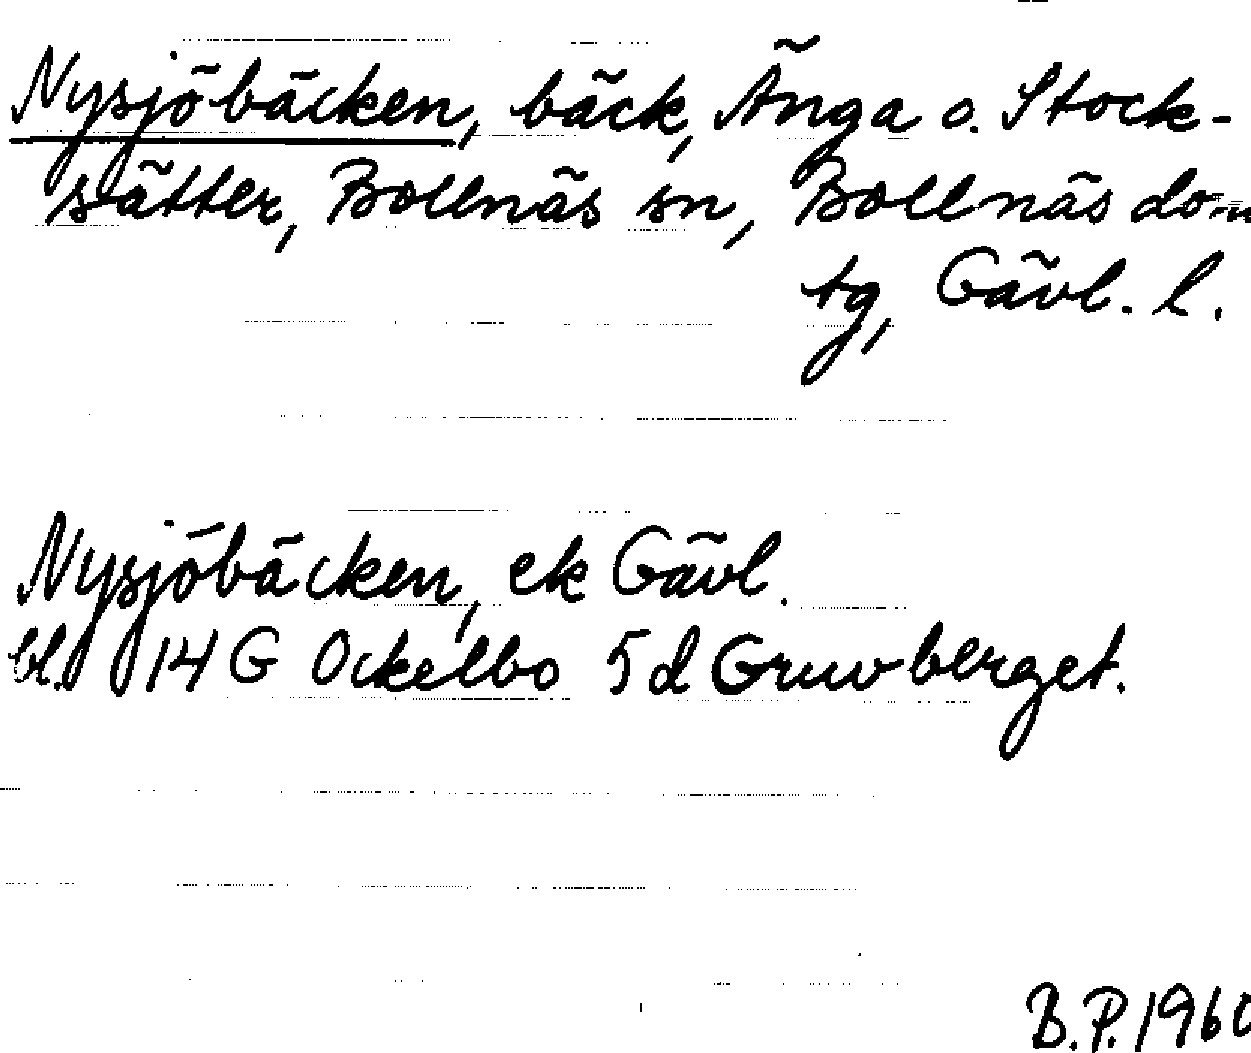 Nysjöbäcken, bäck, Änga o. Stock-
sätter, Bollnäs sn, Bollnäs dom-
tg, Gävl. l.
Nysjöbäcken, ek Gävl.
bl. 14 G Ockelbo 5d Gruvberget.
B.P. 1960